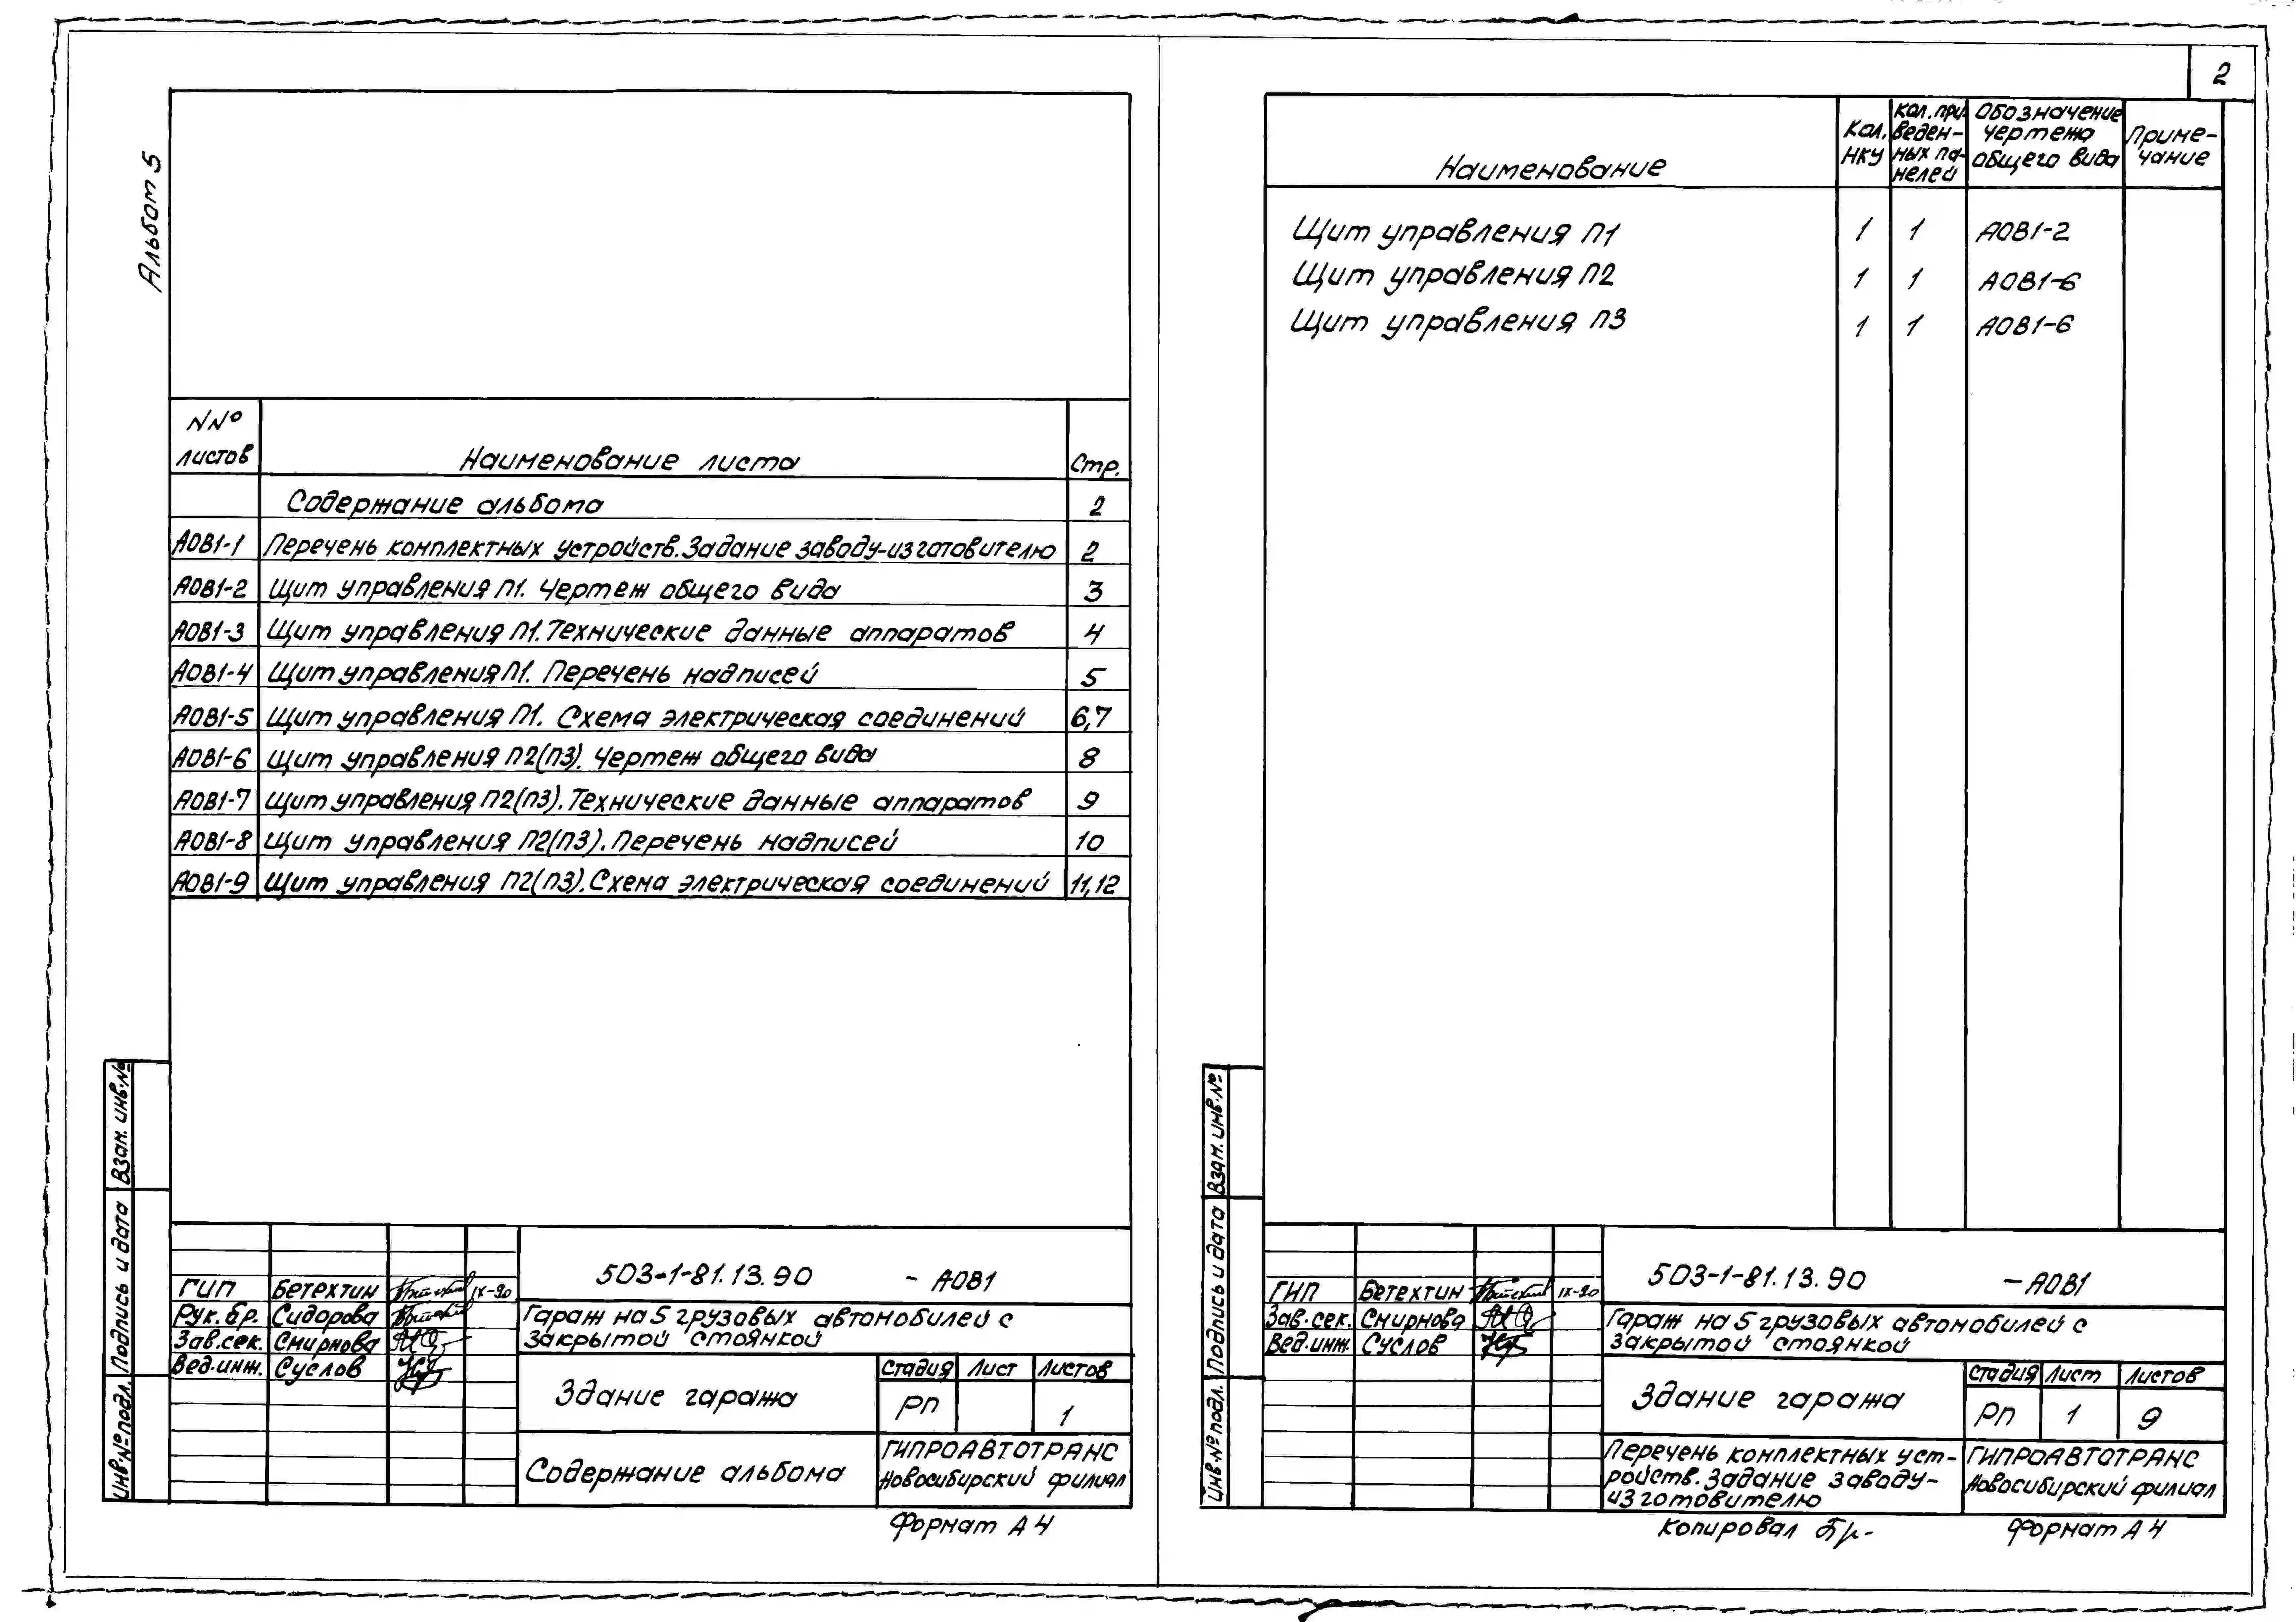 2
Альбом 5
NNº листов Наименование листа Стр.
Содержание альбома 2
АОВ1-1 Перечень комплектных устройств. Задание заводу-изготовителю 2
АОВ1-2 Щит управления П1. Чертеж общего вида 3
АОВ1-3 Щит управления П1. Технические данные аппаратов 4
АОВ1-4 Щит управления П1. Перечень надписей 5
АОВ1-5 Щит управления П1. Схема электрическая соединений 6,7
АОВ1-6 Щит управления П2(П3). Чертеж общего вида 8
АОВ1-7 Щит управления П2(П3). Технические данные аппаратов 9
АОВ1-8 Щит управления П2(П3). Перечень надписей 10
АОВ1-9 Щит управления П2(П3). Схема электрическая соединений 11,12
Взам. инв.№
Подпись и дата
Инв.№ подл.
ГИП Бетехтин IX-90
Рук. бр. Сидорова
Зав.сек. Смирнова
Вед.инж. Суслов
503-1-81.13.90 - АОВ1
Гараж на 5 грузовых автомобилей с
закрытой стоянкой
Здание гаража
Стадия Лист Листов
РП 1
Содержание альбома
ГИПРОАВТОТРАНС
Новосибирский филиал
Формат А4
Наименование
Кол.
НКУ
Кол. при-
веден-
ных па-
нелей
Обозначение
чертежа
общего вида
Приме-
чание
Щит управления П1 1 1 АОВ1-2
Щит управления П2 1 1 АОВ1-6
Щит управления П3 1 1 АОВ1-6
Взам. инв.№
Подпись и дата
Инв.№ подл.
ГИП Бетехтин IX-90
Зав.сек. Смирнова
Вед.инж. Суслов
503-1-81.13.90 - АОВ1
Гараж на 5 грузовых автомобилей с
закрытой стоянкой
Здание гаража
Стадия Лист Листов
РП 1 9
Перечень комплектных уст-
ройств. Задание заводу-
изготовителю
ГИПРОАВТОТРАНС
Новосибирский филиал
Копировал
Формат А4